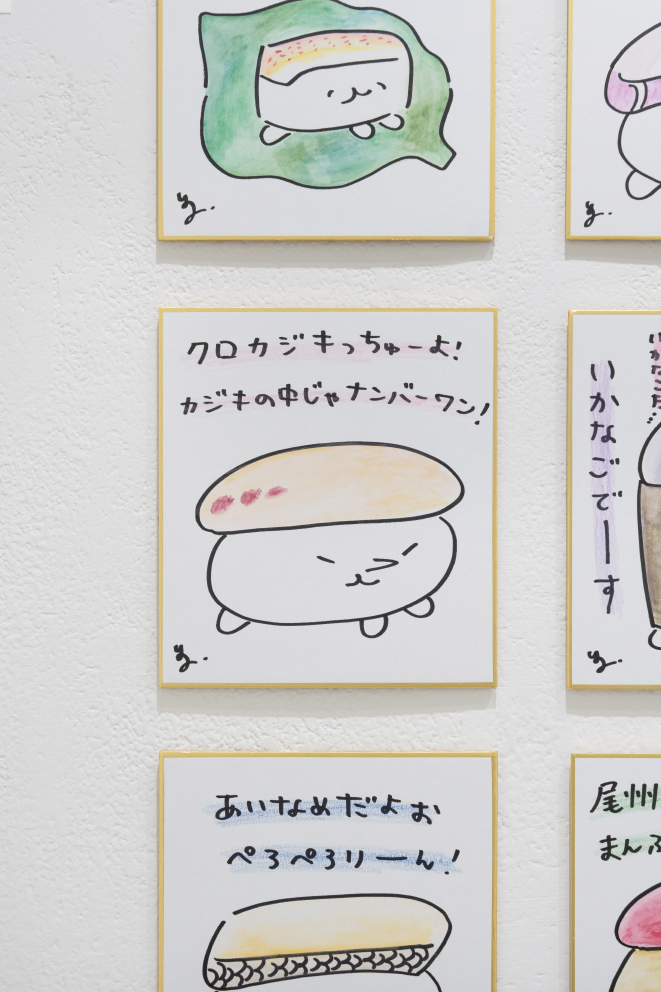 クロカジキっちゅーよ!
カジキの中じゃナンバーワン!
いかなごでーす
あいなめだよぉ
ぺろぺろりーん!
尾州
まん